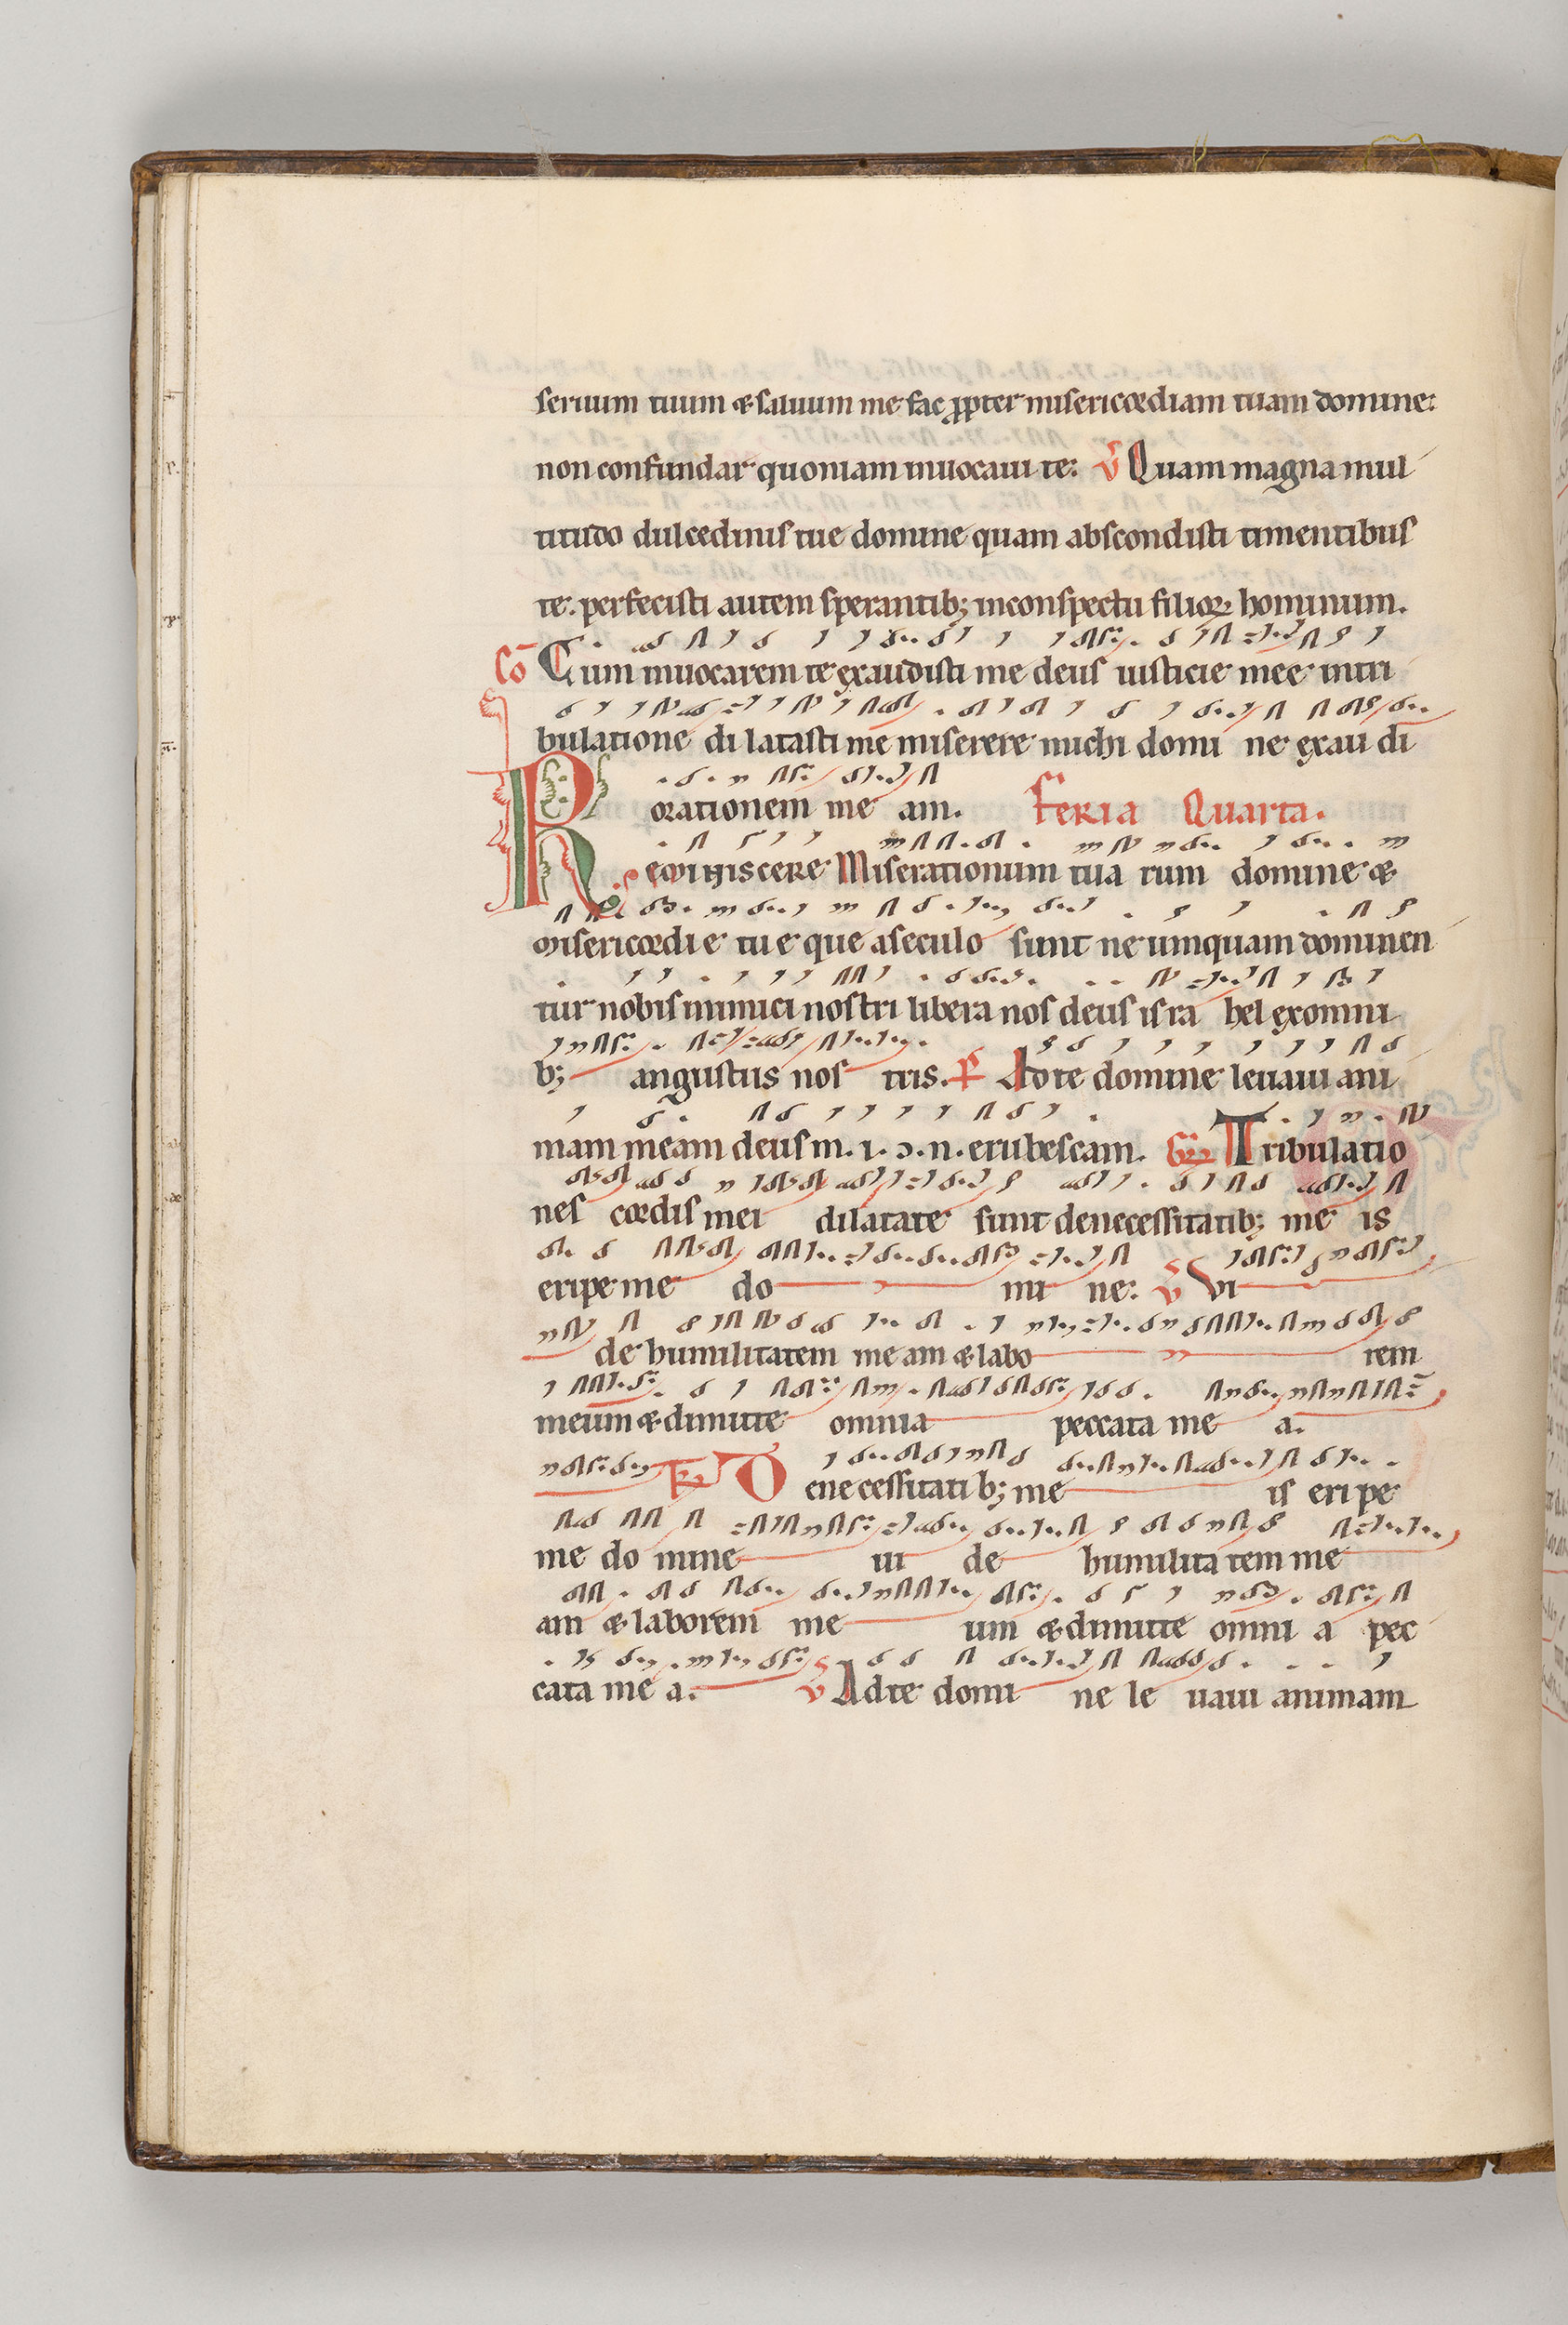 seruum tuum & saluum me fac ꝓpter misericordiam tuam domine:
non confundar quoniam inuocaui te: V̄ Quam magna mul
titudo dulcedinis tue domine quam abscondisti timentibus
te: perfecisti autem sperantib; inconspectu filioꝝ hominum.
Cō Cum inuocarem te exaudisti me deus iusticie mee intri
bulatione dilatasti me miserere michi domine exaudi
orationem meam. Feria Quarta.
Reminiscere Miserationum tuarum domine &
misericordie tue que aseculo sunt ne umquam dominen
tur nobis inimici nostri libera nos deus israhel exomni
b; angustiis nostris. P̄ Adte domine leuaui ani
mam meam deus m. i. ɔ. n. erubescam. Gr Tribulatio
nes cordis mei dilatate sunt denecessitatib; meis
eripe me domine: V̄ Vi
de humilitatem meam & laborem
meum & dimitte omnia peccata mea.
Tr Denecessitatib; meis eripe
me domine uide humilitatem me
am & laborem meum & dimitte omnia pec
cata mea. V̄ Adte domine leuaui animam